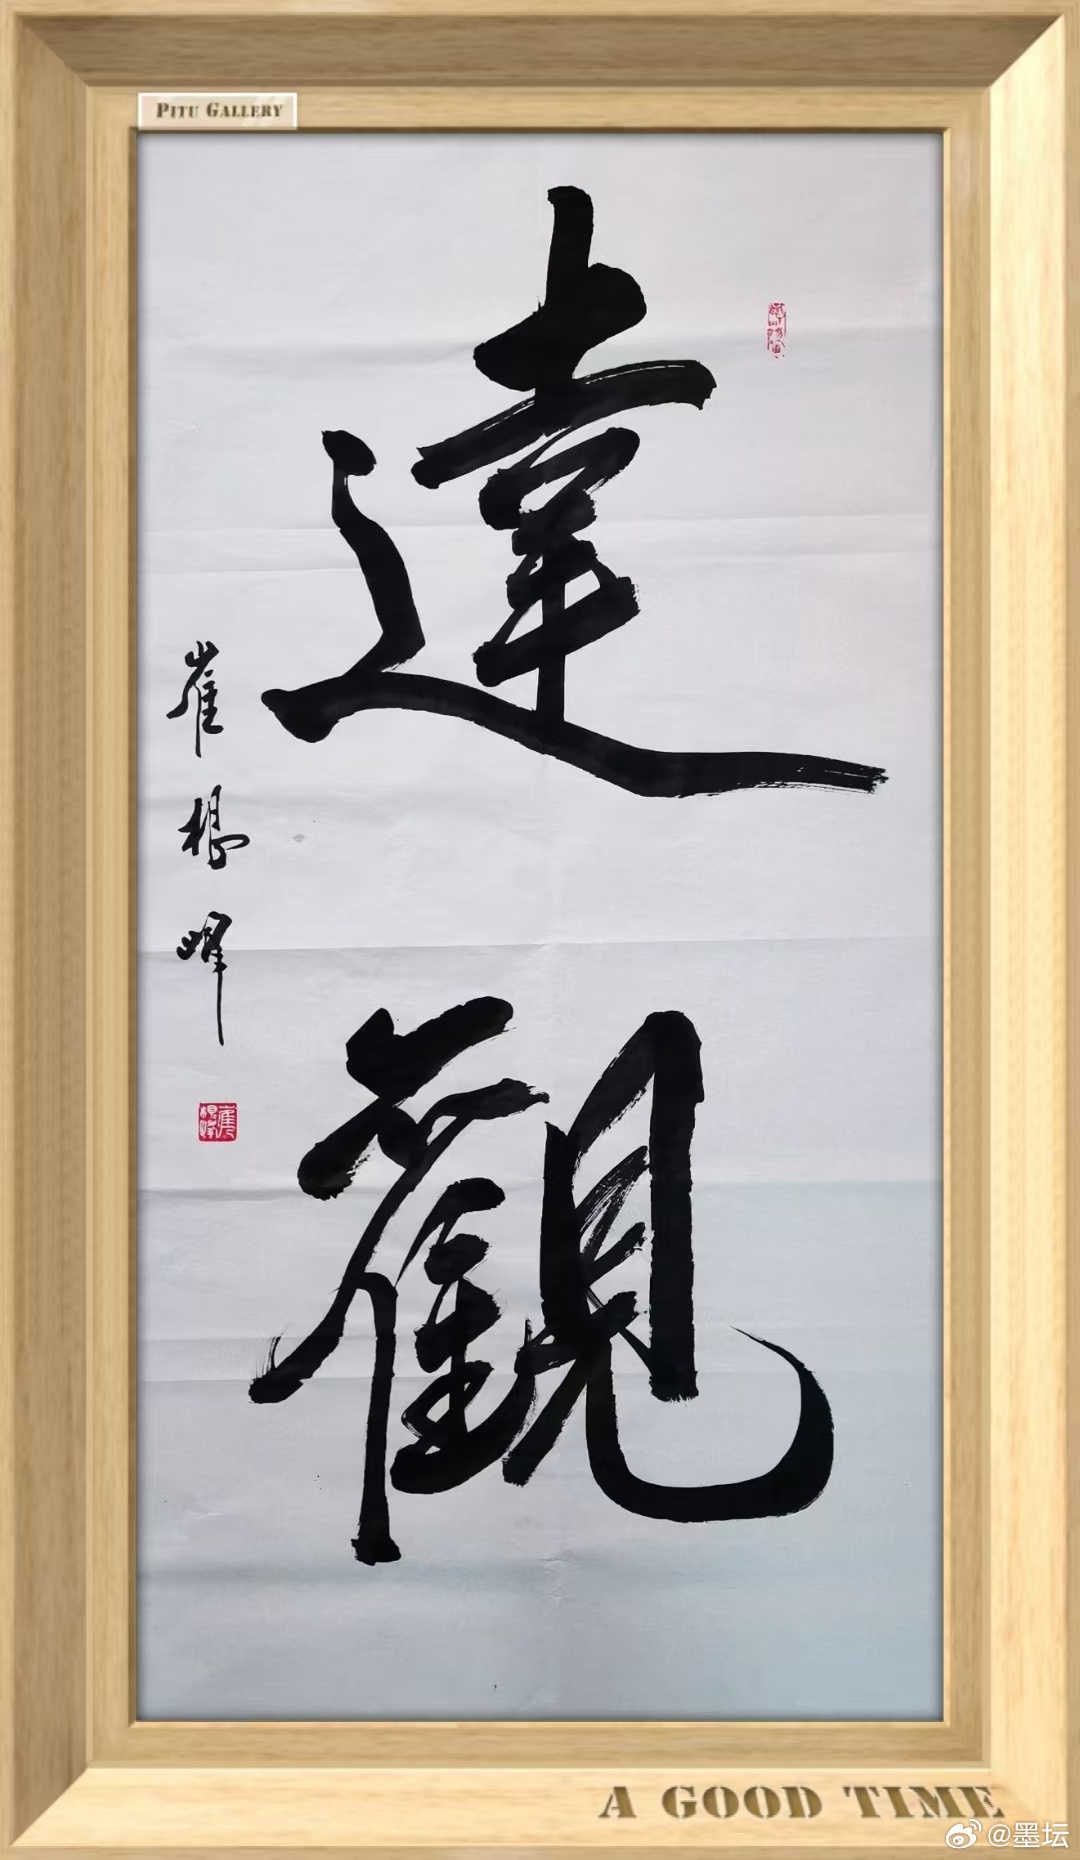 PITU GALLERY
達觀
崔根峰
A GOOD TIME
@墨坛